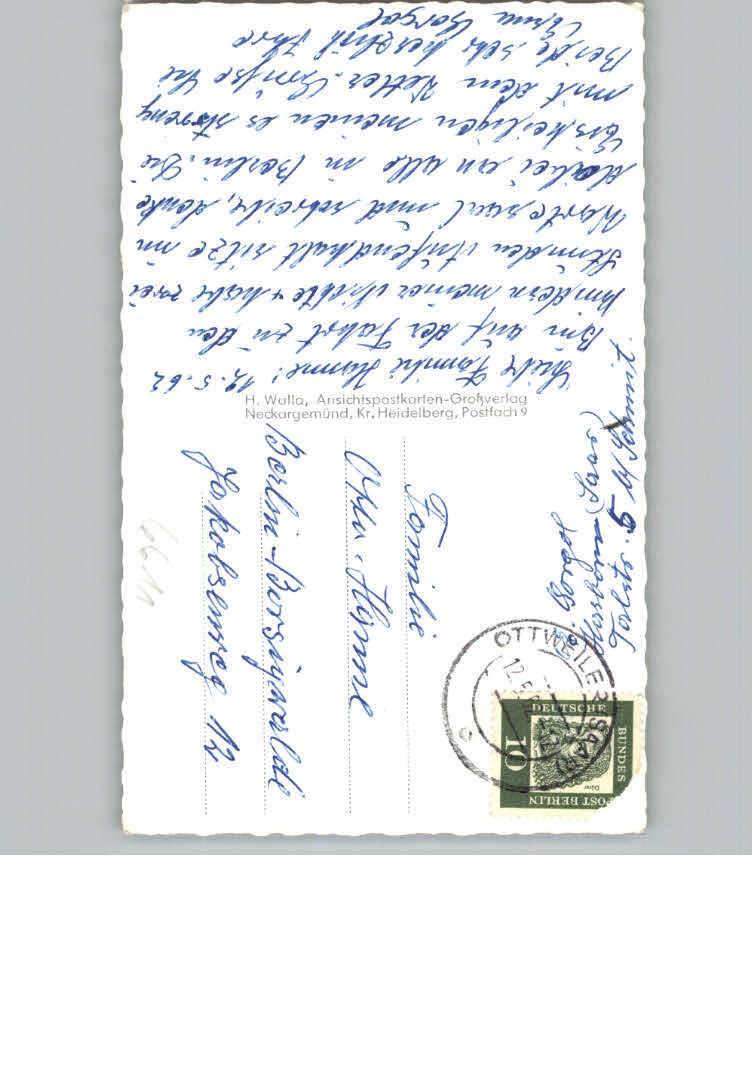 Liebe Familie Hamme! 12.5.62
Bin auf der Fahrt zu den
Kindern meiner Nichte + habe zwei
Stunden Aufenthalt sitze im
Wartesaal und schreibe, denke
dabei an alle in Berlin. Die
Eisheiligen meinen es streng
mit dem Wetter. Grüße Sie
Beide sehr herzlich Ihre
Erna Gorgal
H. Walla, Ansichtspostkarten-Großverlag
Neckargemünd, Kr. Heidelberg, Postfach 9
Familie
Otto Hamme
Berlin-Borsigwalde
Jakobsenweg 12
(Saar)
OTTWEILER (SAAR)
12.5.62
c
DEUTSCHE
BUNDES
POST BERLIN
10
Dürer
6611